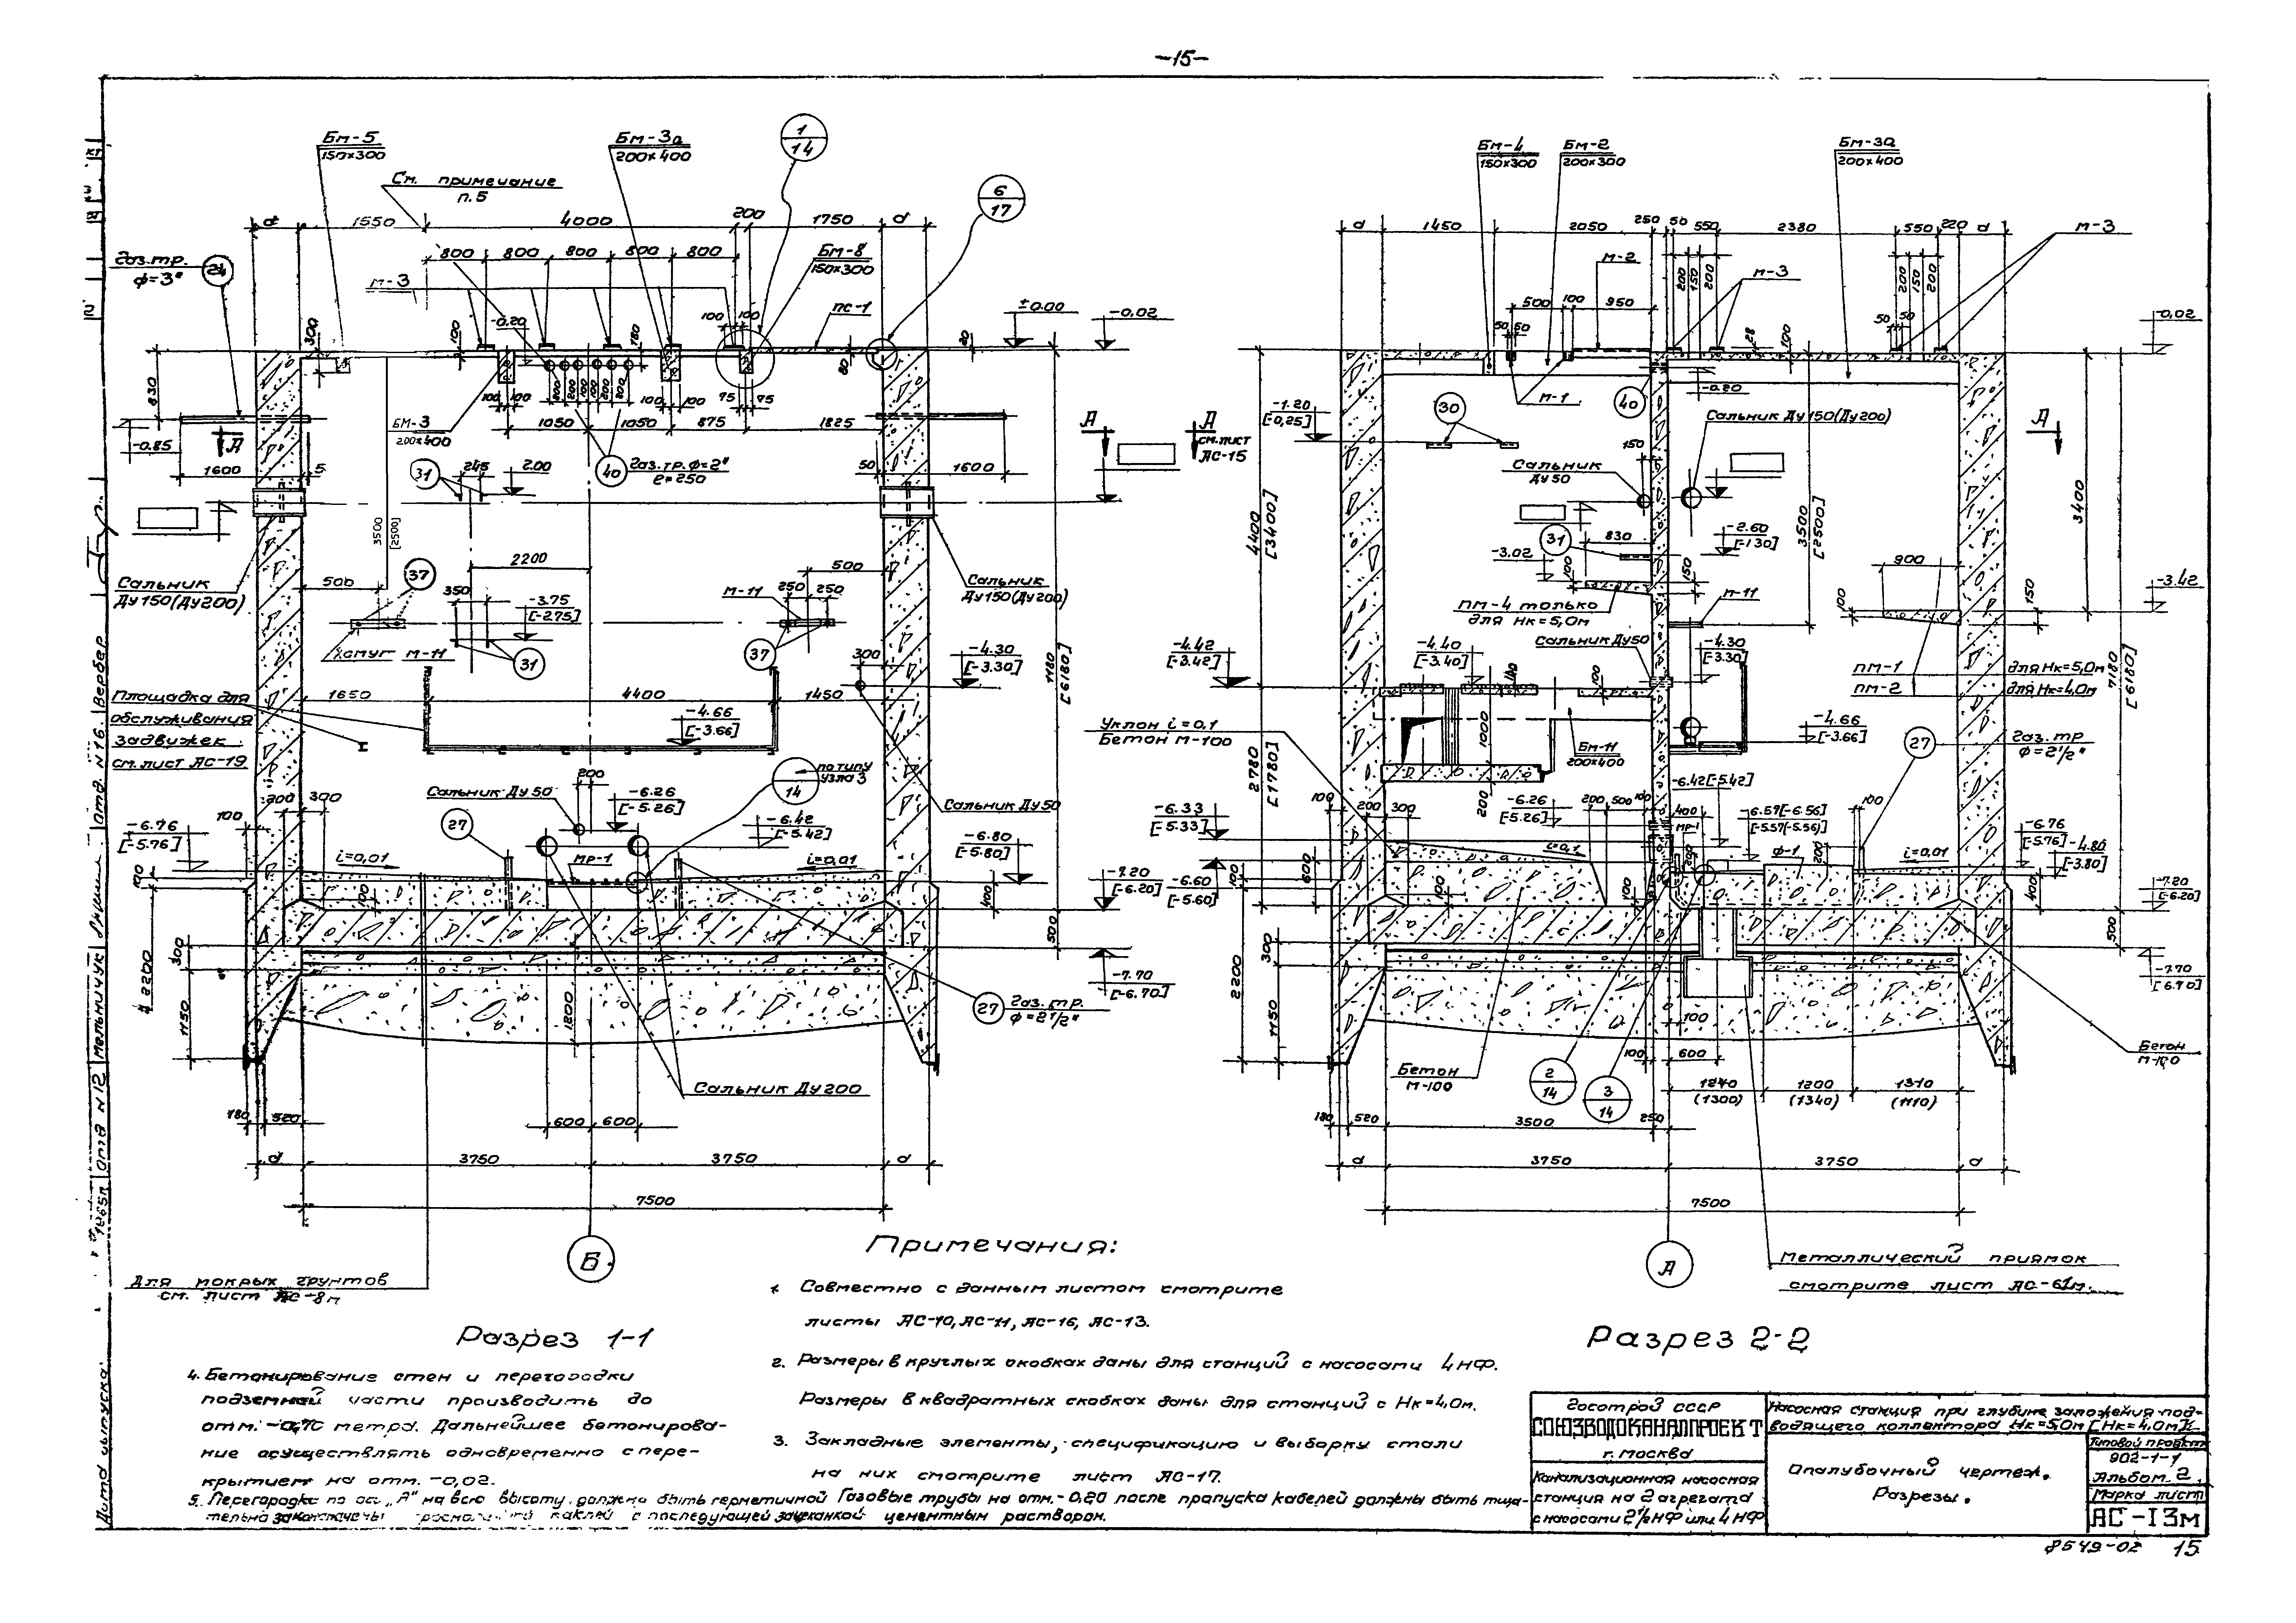 -15-
Бм-5
150×300
Бм-3а
200×400
1
14
См. примечание
п.5
6
17
d
1550
4000
200
1750
d
800
800
800
800
800
Газ.тр.
ф=3"
24
м-3
Бм-8
150×300
пс-1
±0.00
-0.02
300
100
-0.20
180
100
100
20
80
830
-0.85
А
1600
5
БМ-3
200×400
100
100
200
200
100
100
200
200
100
100
75
75
1050
1050
875
1825
31
245
2.00
40
Газ.тр.ф=2"
ℓ=250
50
1600
А
А
см.лист
АС-15
3500
[2500]
Сальник
Ду150(Ду200)
500
37
2200
350
-3.75
[-2.75]
500
м-11
250
250
Сальник
Ду150(Ду200)
Хомут м-11
31
37
300
-4.30
[-3.30]
7180
[6180]
Площадка для
обслуживания
задвижек
см.лист АС-19
1650
4400
1450
-4.66
[-3.66]
200
14
по типу
узла 3
Сальник Ду50
-6.26
[-5.26]
Сальник Ду50
200
300
100
27
-6.42
[-5.42]
-6.76
[-5.76]
-6.80
[-5.80]
i=0,01
мр-1
i=0,01
100
400
-7.20
[-6.20]
500
300
2200
1150
1200
-7.70
[-6.70]
27
Газ.тр.
ф=2 1/2"
Сальник Ду200
180
520
600
600
d
3750
3750
d
7500
Б
Для мокрых грунтов
см. лист АС-8м
Разрез 1-1
Бм-4
150×300
Бм-2
200×300
Бм-3а
200×400
d
1450
2050
250
50
550
2380
550
220
d
м-3
м-2
м-3
200
150
200
200
150
200
500
100
950
50
50
50
50
28
100
-0.02
м-1
40
-0.20
30
-1.20
[-0,25]
Сальник Ду150(Ду200)
А
150
Сальник
Ду50
4400
[3400]
3500
[2500]
3400
31
830
-2.60
[-1.30]
-3.02
100
150
900
-3.42
100
150
пм-4 только
для Нк=5,0м
м-11
Сальник Ду50
-4.42
[-3.42]
-4.40
[-3.40]
-4.30
[-3.30]
пм-1 для Нк=5,0м
пм-2 для Нк=4,0м
7180
[6180]
100
Уклон i=0,1
Бетон М-100
1000
Бм-11
200×400
-4.66
[-3.66]
27
Газ.тр
ф=2 1/2"
2780
[1780]
-6.42[-5.42]
100
200
300
200
-6.26
[5.26]
200
500
100
400
-6.57[-6.56]
[-5.57[-5.56]
100
-6.33
[-5.33]
мр-1
-6.76
[-5.76]
-4.80
[-3.80]
i=0,1
200
ф-1
200
i=0,01
600
100
-6.60
[-5.60]
100
100
400
-7.20
[-6.20]
300
500
2200
1150
-7.70
[6.70]
100
100
600
Бетон
М-100
Бетон
М-100
2
14
3
14
1240
(1300)
1200
(1340)
1310
(1110)
180
520
3500
250
d
3750
3750
d
7500
А
Металлический приямок
смотрите лист АС-61м.
Разрез 2-2
Примечания:
1. Совместно с данным листом смотрите
листы АС-10, АС-11, АС-16, АС-13.
2. Размеры в круглых скобках даны для станций с насосами 4НФ.
Размеры в квадратных скобках даны для станций с Нк=4,0м.
3. Закладные элементы, спецификацию и выборку стали
на них смотрите лист АС-17.
4. Бетонирование стен и перегородки
подземной части производить до
отм. -0,70 метра. Дальнейшее бетонирова-
ние осуществлять одновременно с пере-
крытием на отм. -0,02.
5. Перегородка по оси "А" на всю высоту должна быть герметичной Газовые трубы на отм.-0,20 после пропуска кабелей должны быть тща-
тельно законопачены паклей с последующей зачеканкой цементным раствором.
Госстрой СССР
СОЮЗВОДОКАНАЛПРОЕКТ
г. Москва
Канализационная насосная
станция на 2 агрегата
с насосами 2½НФ или 4НФ
Насосная станция при глубине заложения под-
водящего коллектора Нк=5,0м [Нк=4,0м].
Опалубочный чертеж.
Разрезы.
Типовой проект
902-1-1
Альбом 2
Марка лист
АС-13м
8549-02 15
Дата выпуска:
Отд. N 12
Мельничук
Отд. N16
Вербер